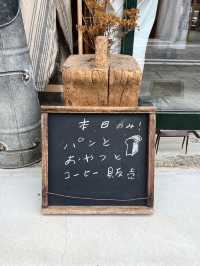 本日のみ!
パンと
おやつと
コーヒー販売